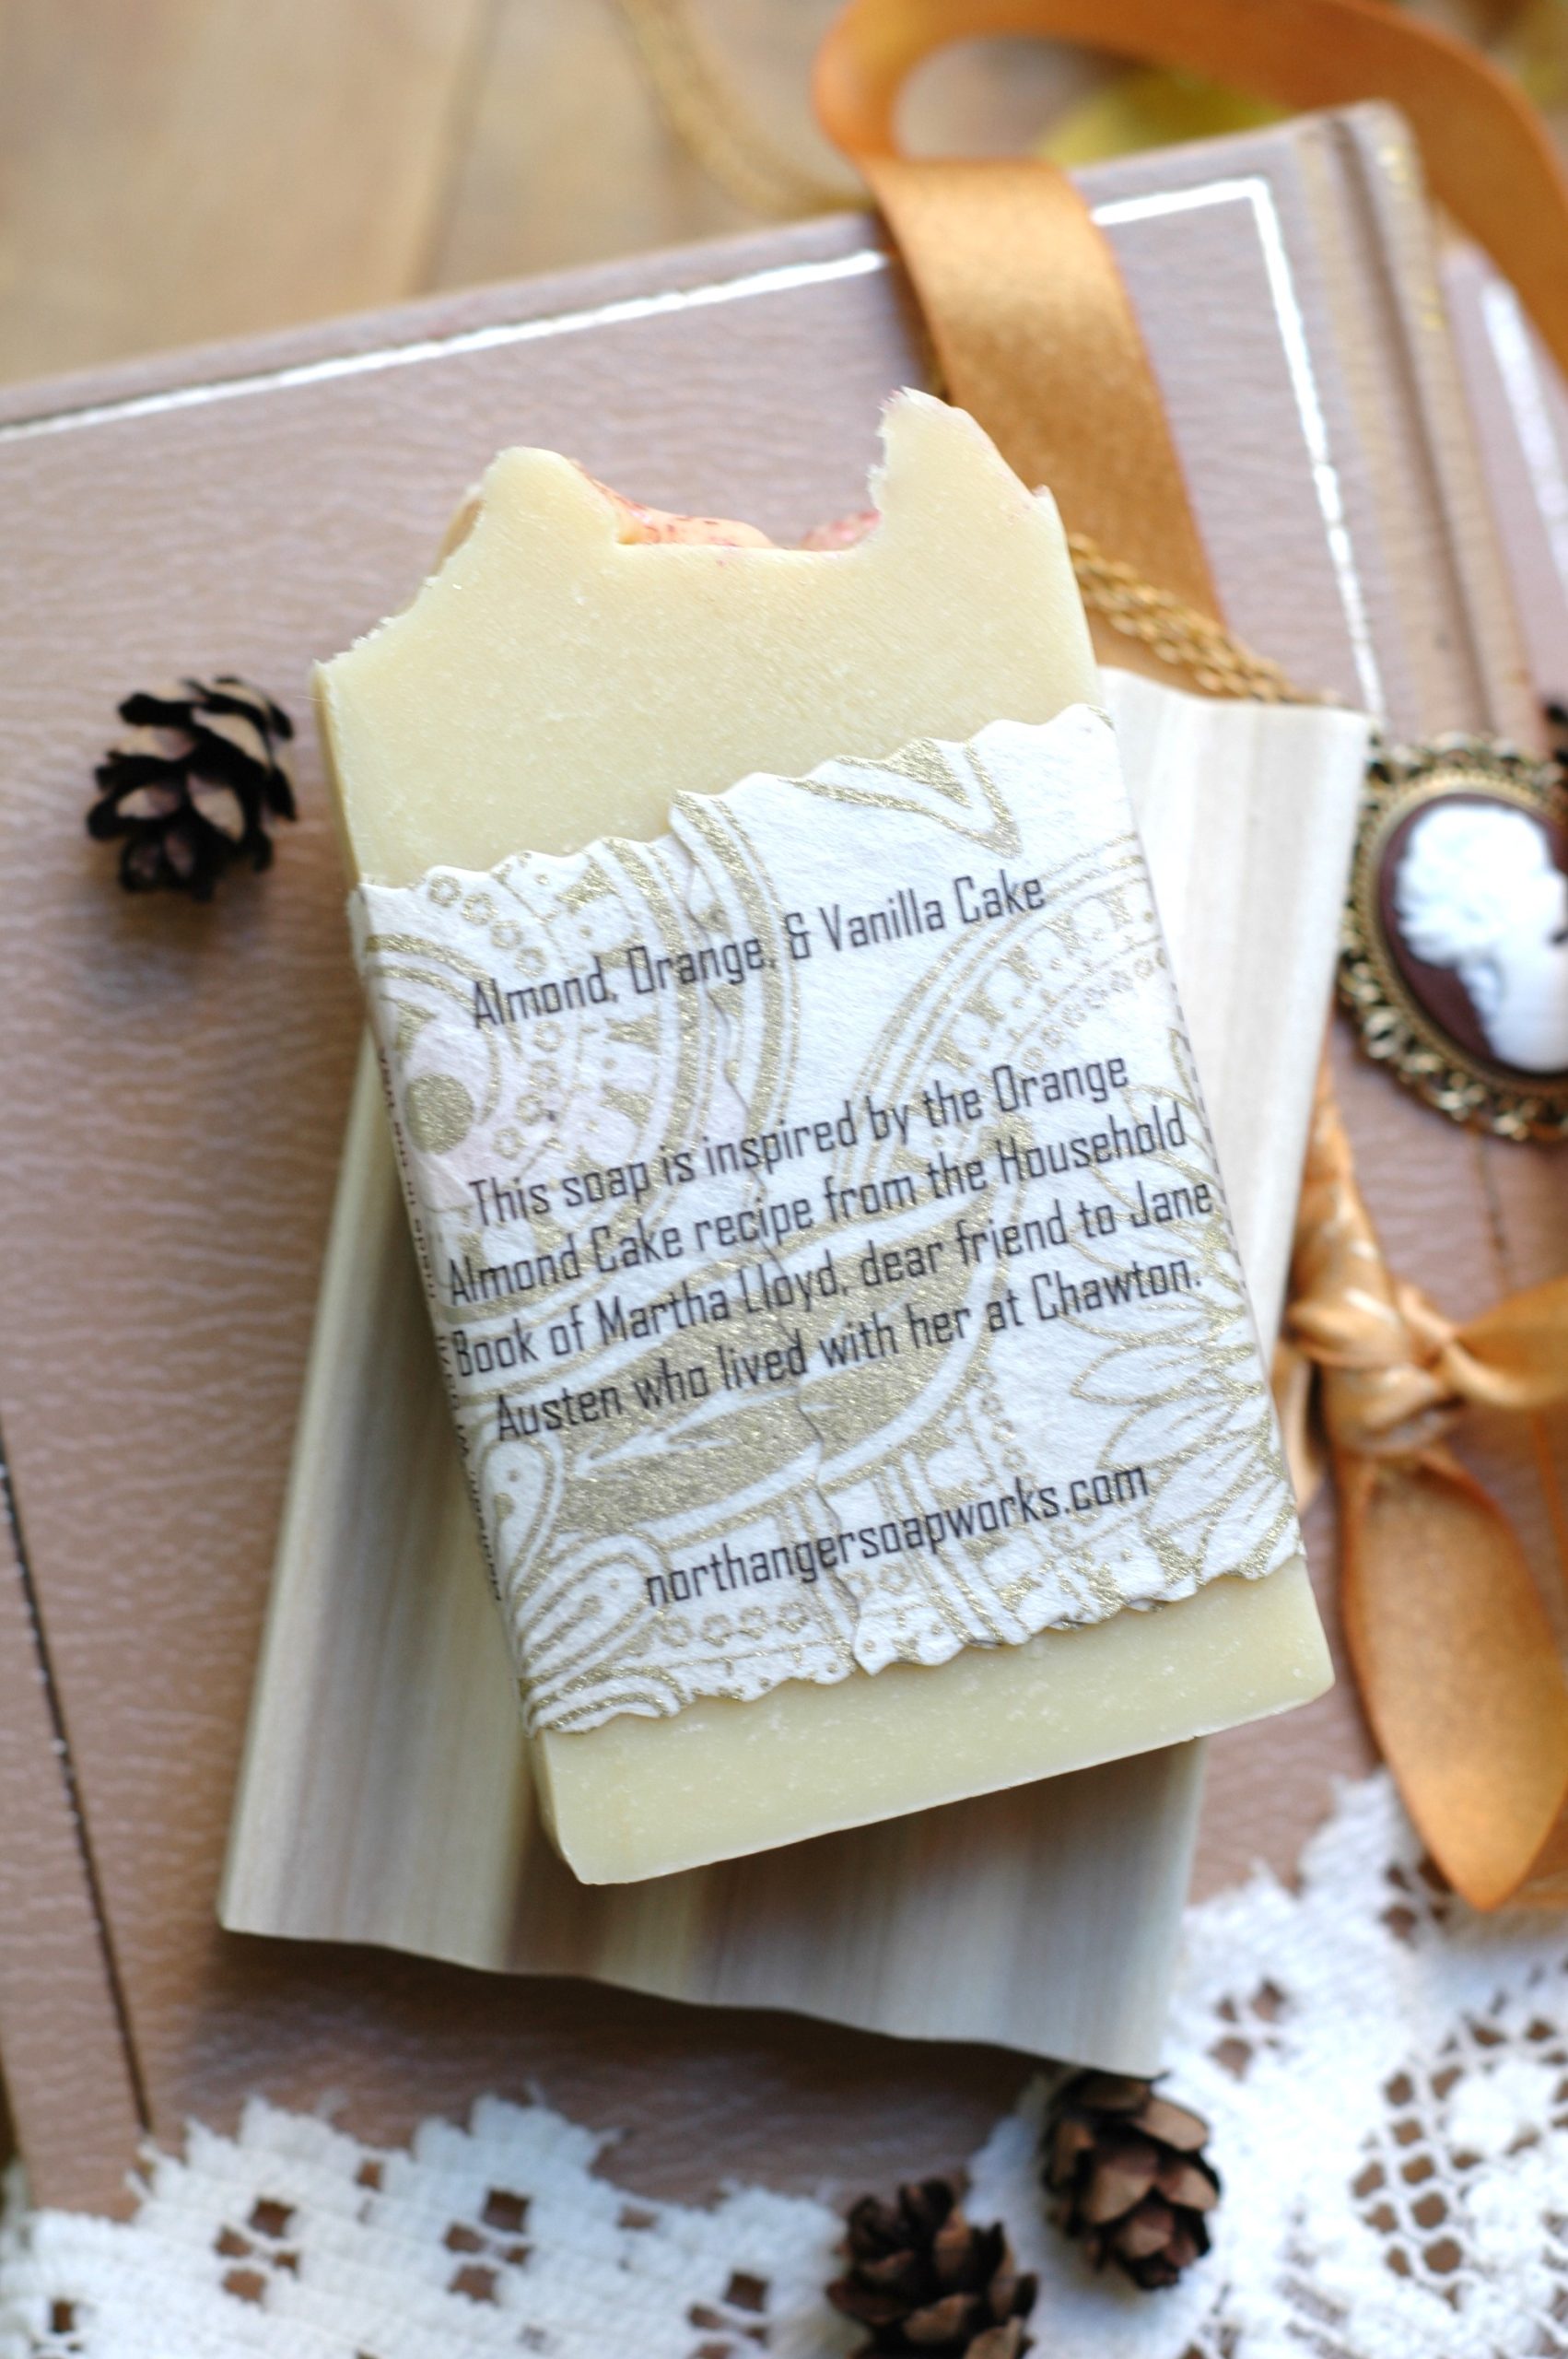 Almond, Orange, & Vanilla Cake
This soap is inspired by the Orange
Almond Cake recipe from the Household
Book of Martha Lloyd, dear friend to Jane
Austen who lived with her at Chawton.
northangersoapworks.com